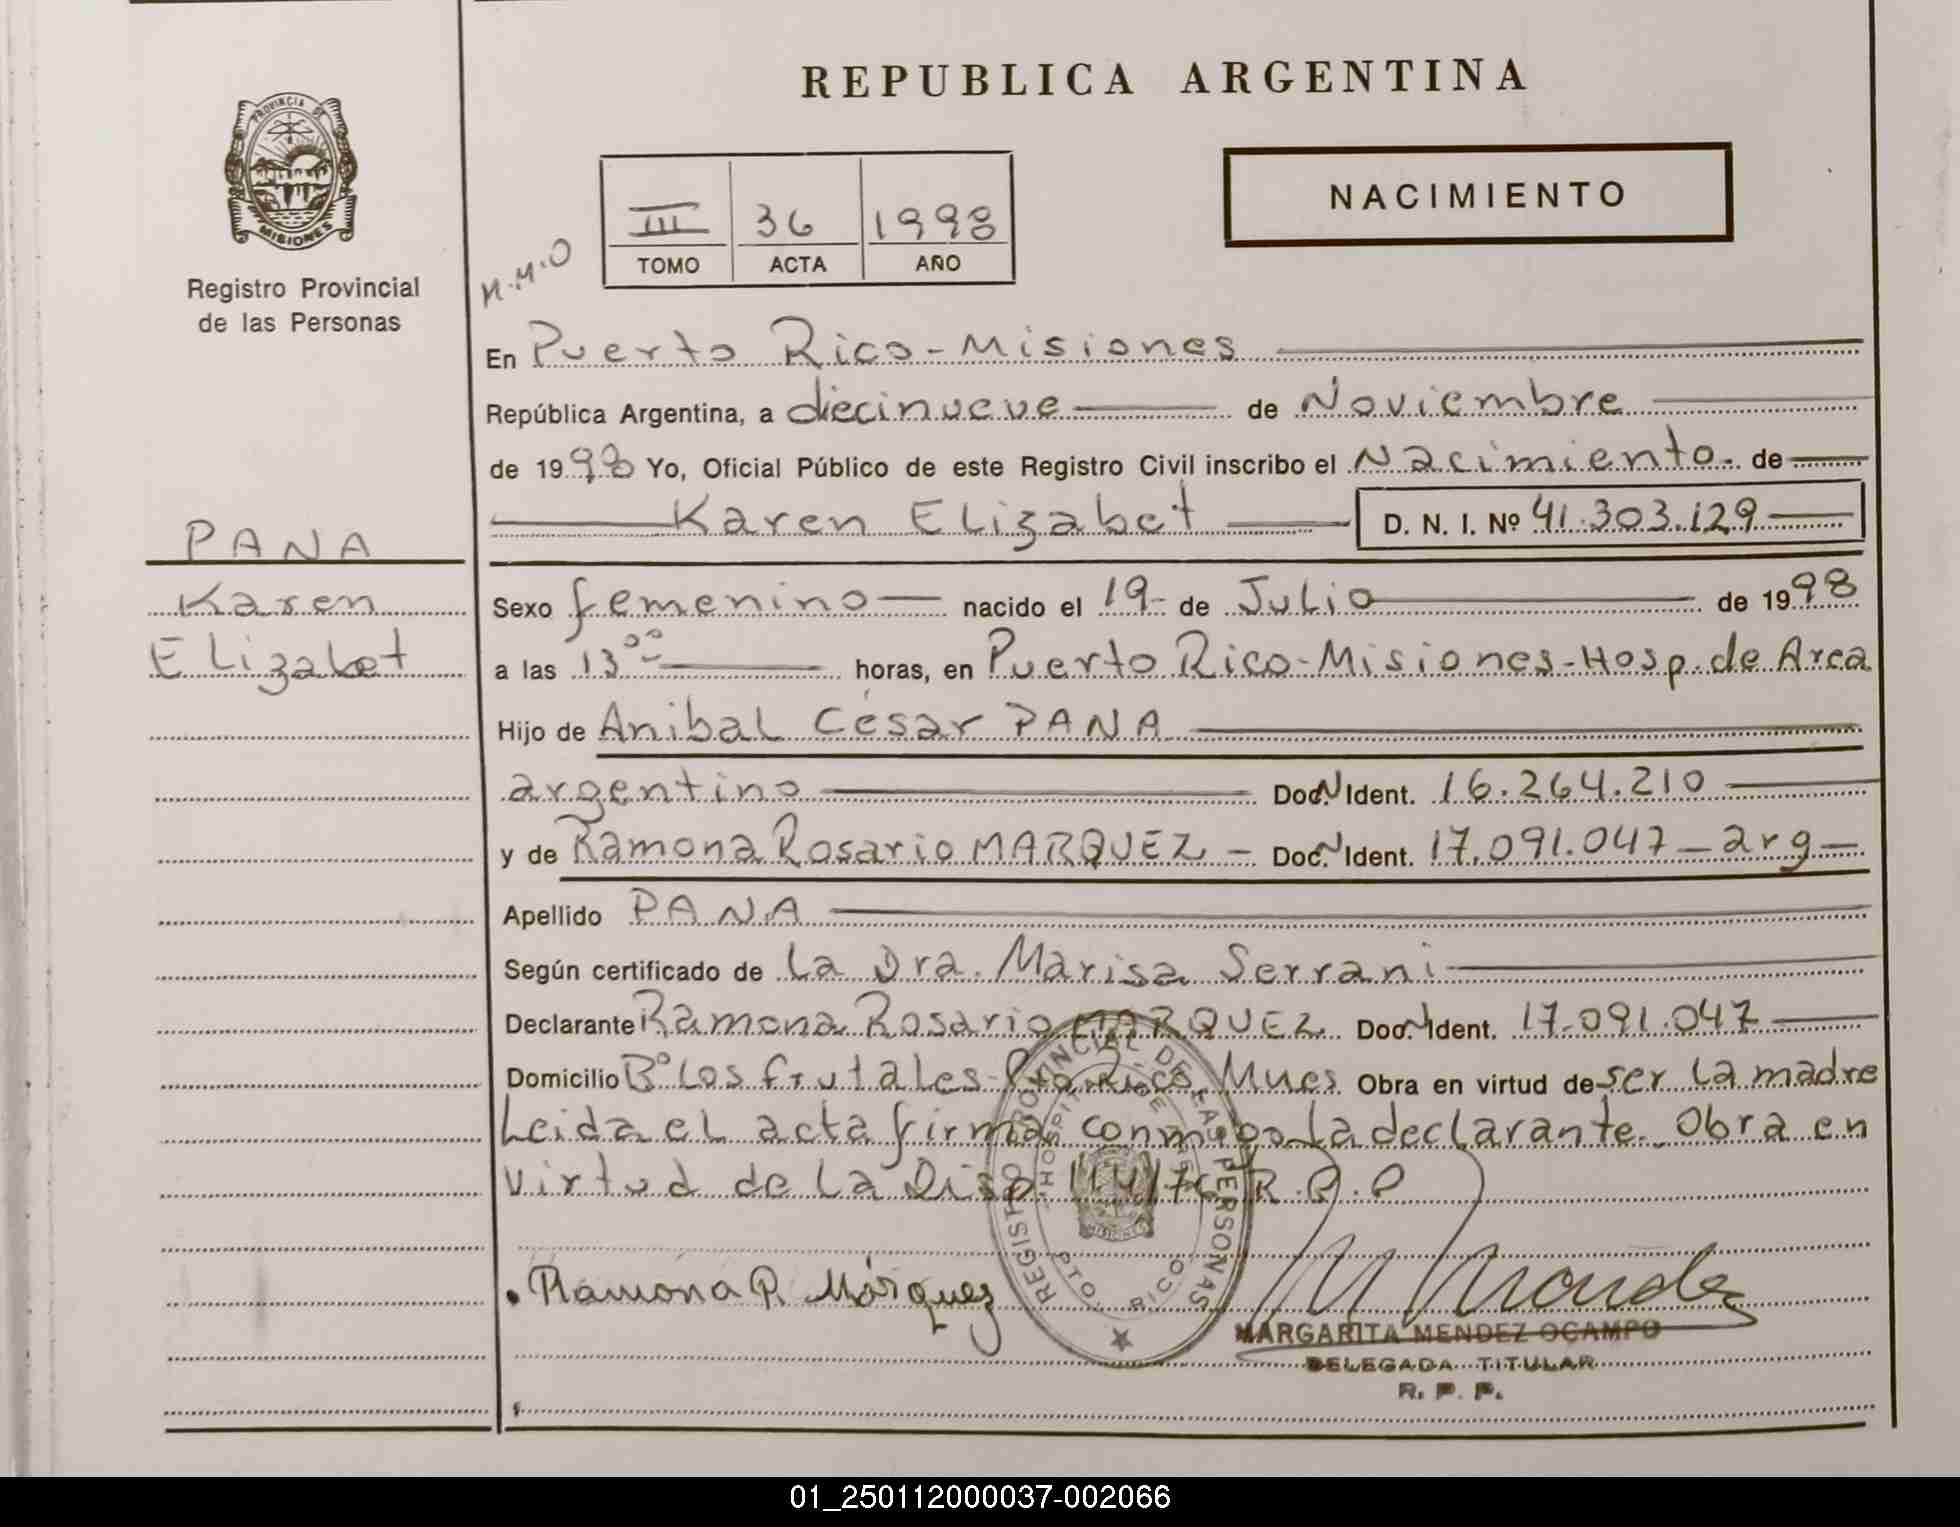 REPUBLICA ARGENTINA
PROVINCIA DE
MISIONES
Registro Provincial
de las Personas
NACIMIENTO
III 36 1998
TOMO ACTA AÑO
M.M.O
En Puerto Rico - Misiones
República Argentina, a diecinueve de Noviembre
de 1998 Yo, Oficial Público de este Registro Civil inscribo el Nacimiento. de
Karen Elizabet D. N. I. Nº 41.303.129
PANA
Karen
Elizabet
Sexo femenino nacido el 19- de Julio de 1998
a las 13 00 horas, en Puerto Rico-Misiones-Hosp. de Area
Hijo de Anibal César PANA
argentino Doc. N Ident. 16.264.210
y de Ramona Rosario MARQUEZ - Doc. N Ident. 17.091.047 - arg -
Apellido PANA
Según certificado de La Dra. Marisa Serrani
Declarante Ramona Rosario MARQUEZ Doc. N Ident. 17.091.047
Domicilio Bº Los frutales - Pto. Rico Mnes Obra en virtud de ser la madre
Leida el acta firma conmigo La declarante. Obra en
virtud de la Disp. 114/76 R.P.P
REGISTRO PROVINCIAL DE LAS PERSONAS
HOSPITAL DE AREA
PTO. RICO
Ramona R. Márquez
M Mendez
MARGARITA MENDEZ OCAMPO
DELEGADA TITULAR
R. P. P.
01_250112000037-002066